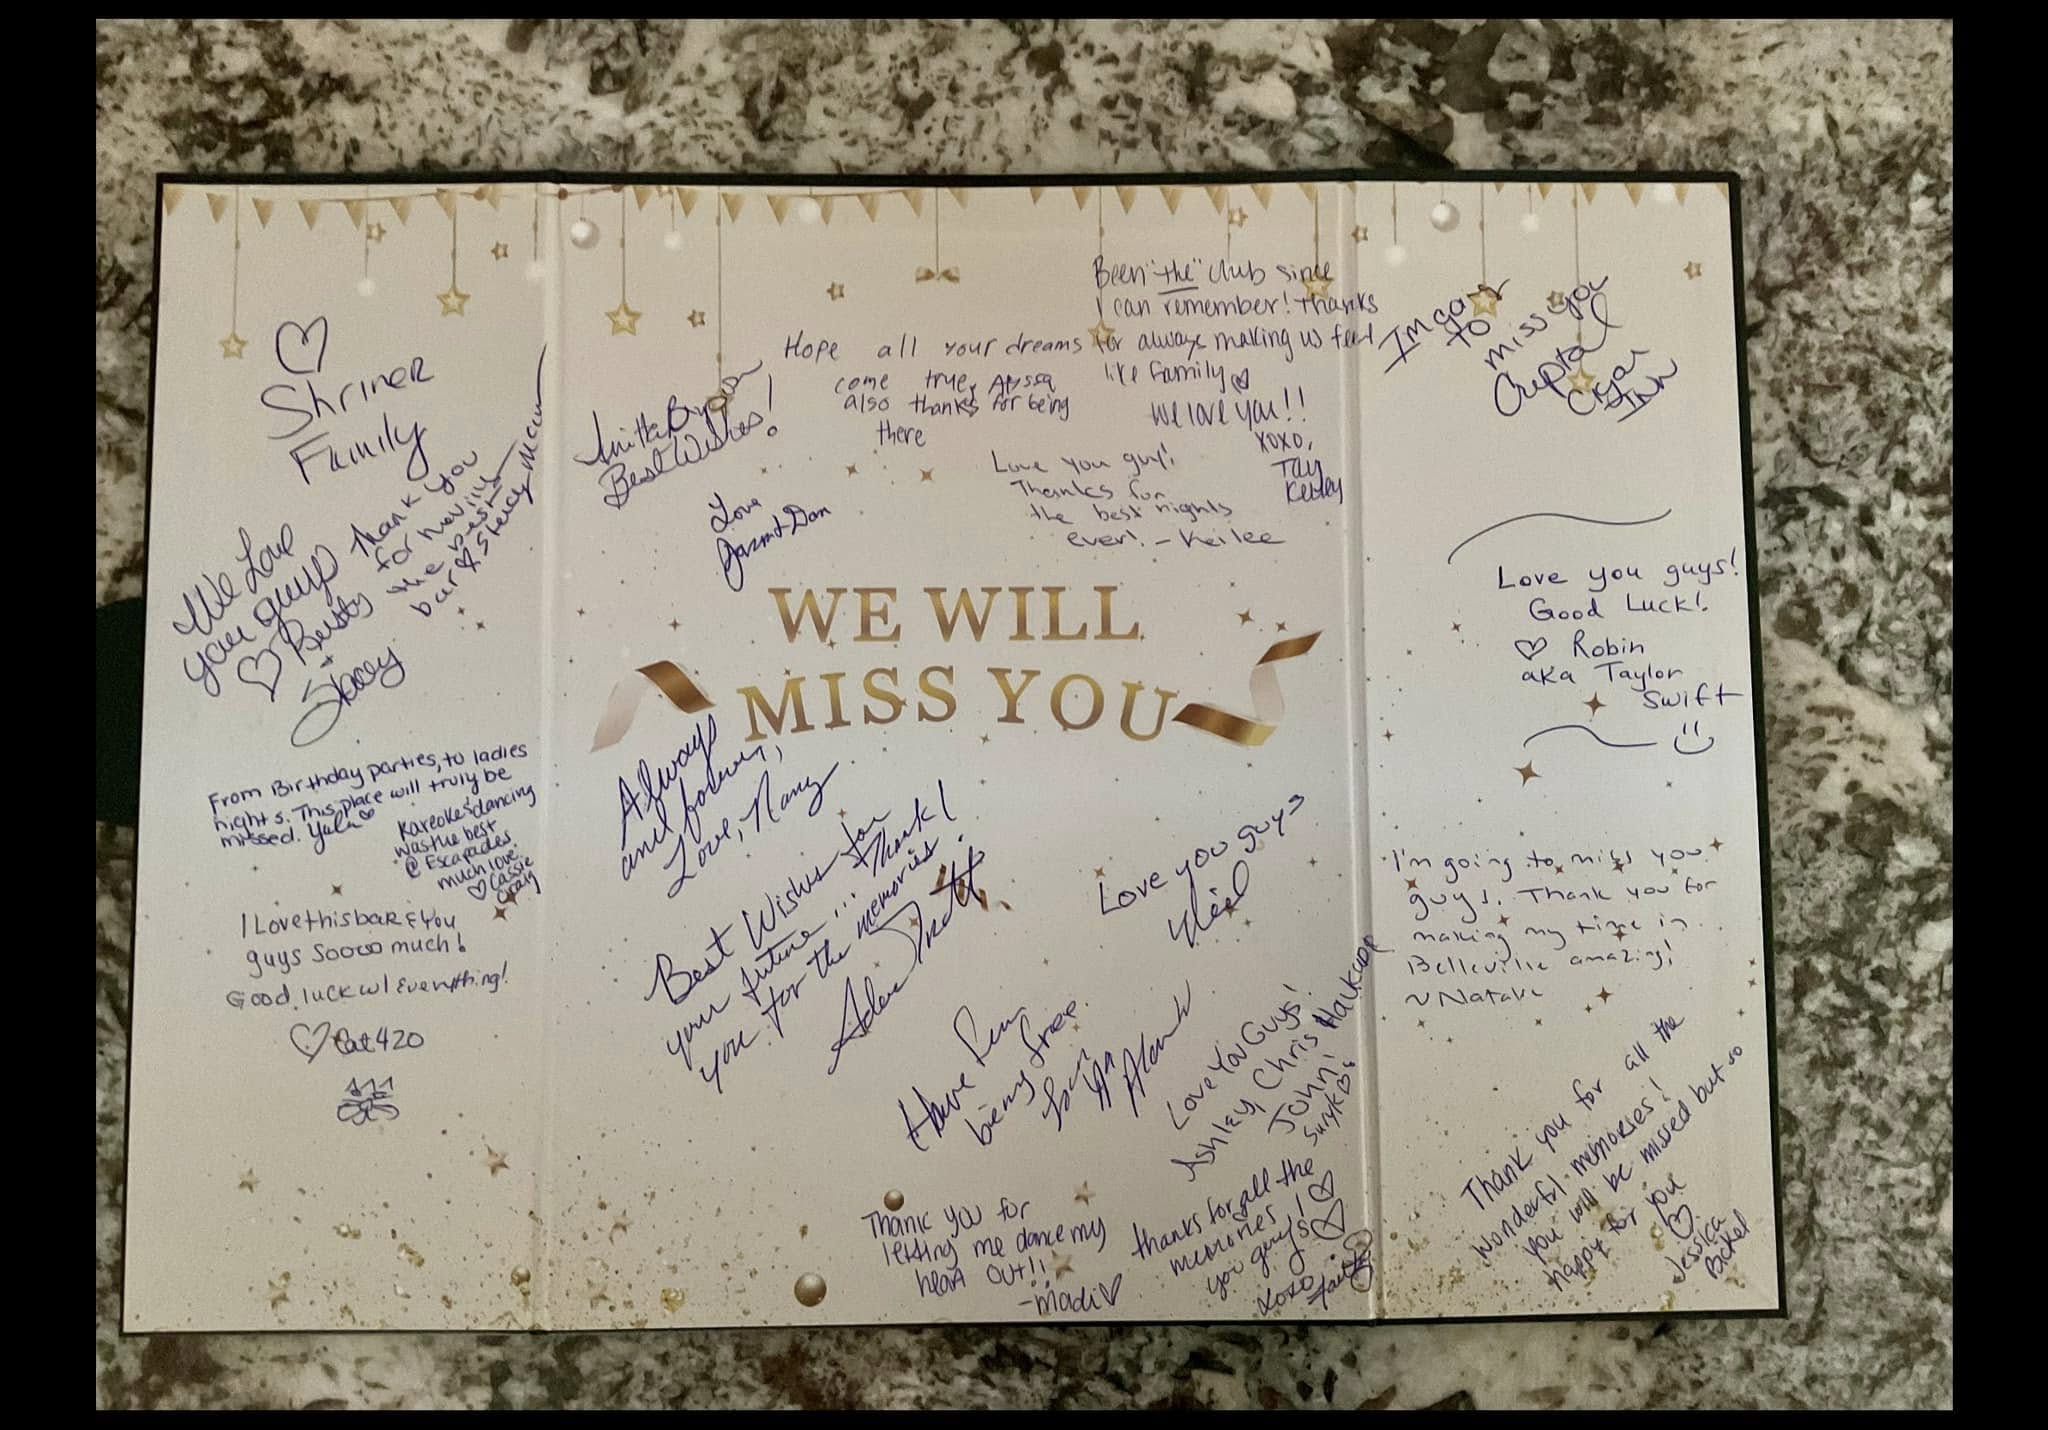 ♡
Shriner
Family
We Love
you guys
♡ Rusty
+
Stacey
Thank you
for having
the best
bar ♡ Stacey
From Birthday parties, to ladies
nights. This place will truly be
missed.
Kareoke & dancing
was the best
@ Escapades.
much love
♡ Cassie
Craig
I Love this bar & You
guys Soooo much!
Good luck w/ Everything!
♡ Cat 420
Best Wishes!
Love
Hope all your dreams
come true, Alyssa
also thanks for being
there
Been "the" club since
I can remember! Thanks
for always making us feel
like family ♡
We love you!!
xoxo,
Tay
Love you guys!
Thanks for
the best nights
ever! - Keilee
WE WILL
MISS YOU
Always
and forever,
Love, Nancy
Best Wishes for
your future... Thank
you for the memories!
Love you guys
Have Fun
being free.
Love You Guys!
Ashley, Chris
John!
Thank you for
letting me dance my
heart out!!
-Madi ♡
thanks for all the
memories! ♡
you guys ♡
xoxo
Im gonna
to
miss you
Love you guys!
Good Luck!
♡ Robin
aka Taylor
Swift
I'm going to miss you
guys. Thank you for
making my time in
Belleville amazing!
Thank you for all the
wonderful memories!
You will be missed but so
happy for you
♡
Jessica